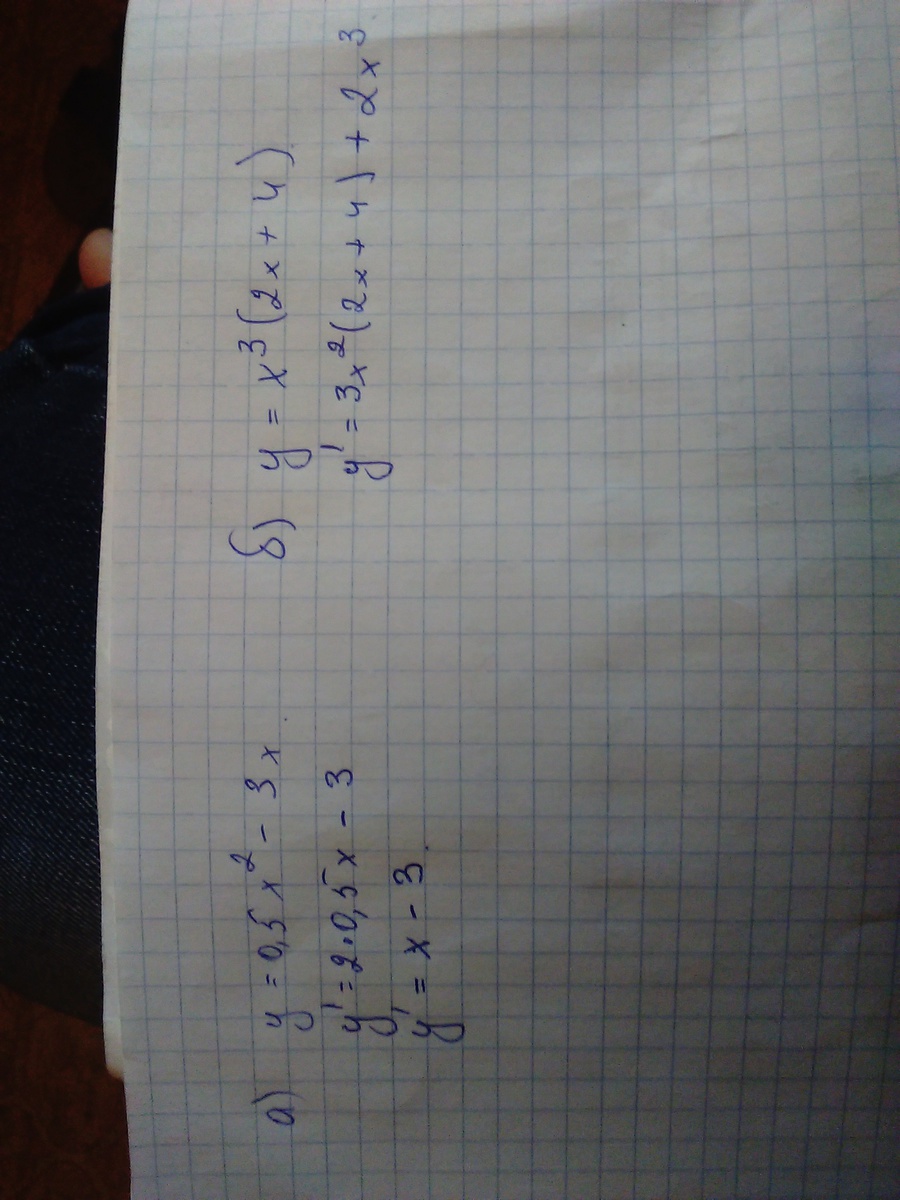 а) y = 0,5x² - 3x
y' = 2·0,5x - 3
y' = x - 3.
б) y = x³(2x + 4)
y' = 3x²(2x + 4) + 2x³